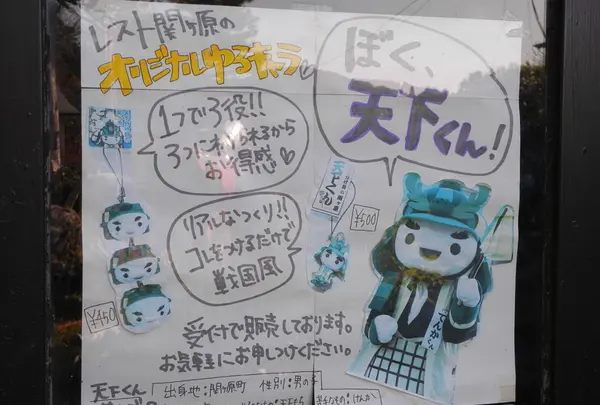 レスト関ヶ原の
オリジナルゆるキャラ
ぼく、
天下くん!
1つで3役!!
3つにわけられるから
お得感♡
リアルなつくり!!
コレをつけるだけで
戦国風
¥500
¥450
てんかくん
受付で販売しております。
お気軽にお申しつけください。
天下くん
出身地:関ヶ原町 性別:男の子